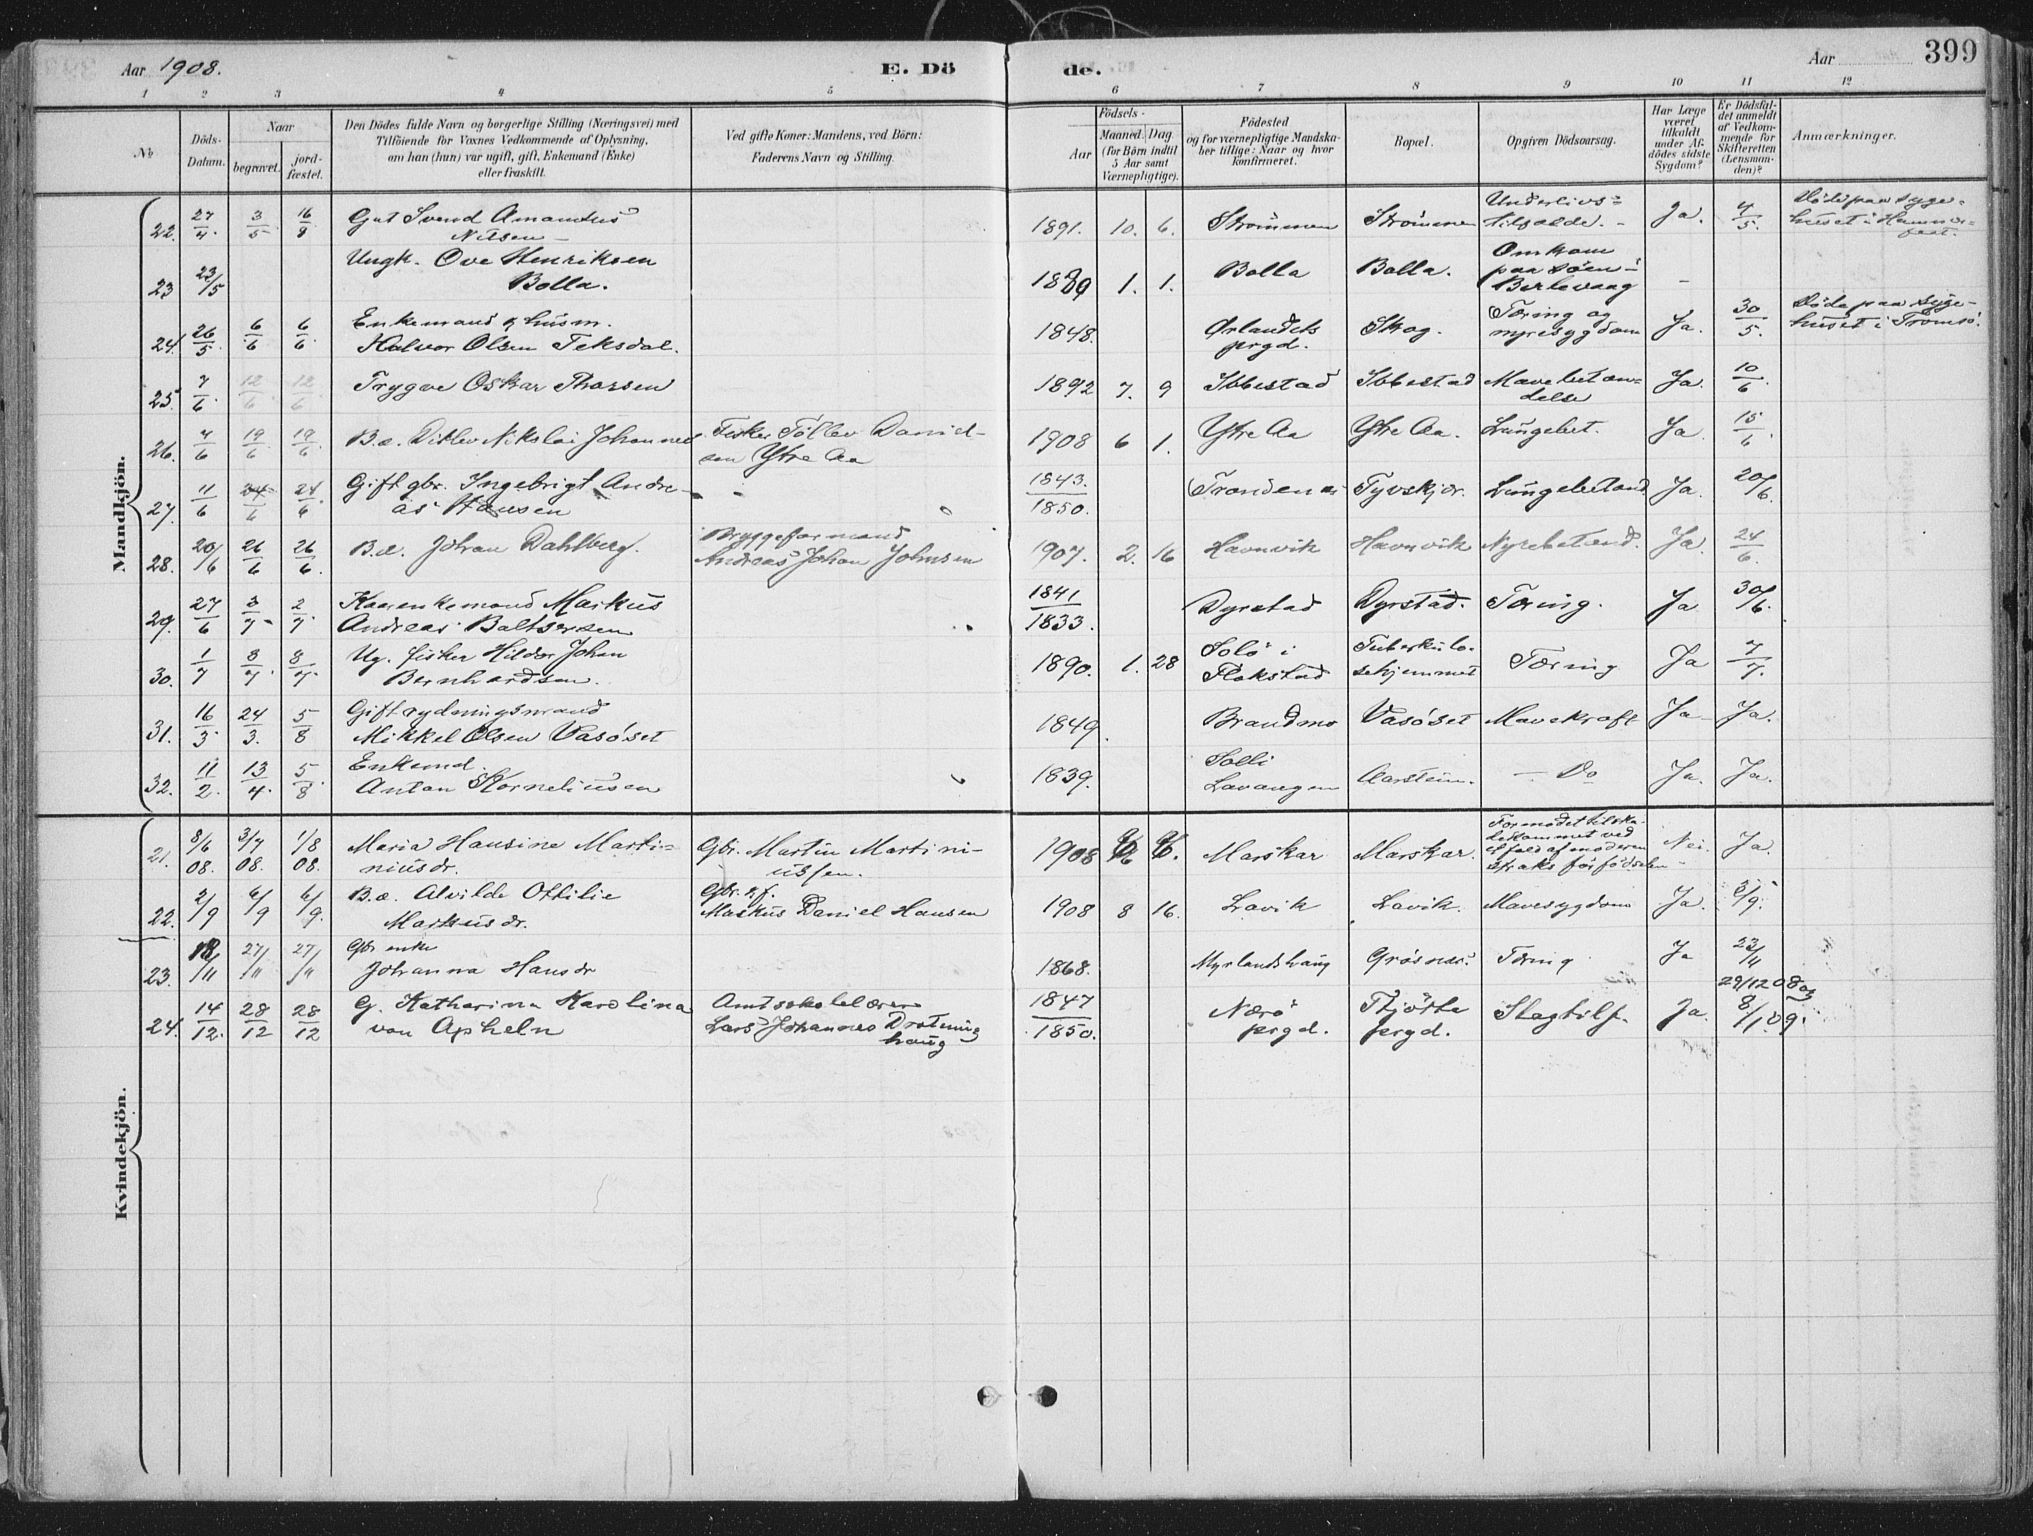 Aar 1908.
E. Dö
de.
Aar
399
1 2 3 4 5 6 7 8 9 10 11 12
No
Döds-
Datum.
Naar
begravet.
jord-
fæstet.
Den Dödes fulde Navn og borgerlige Stilling (Næringsvei) med
Tilföiende for Voxnes Vedkommende af Oplysning,
om han (hun) var ugift, gift, Enkemand (Enke)
eller fraskilt.
Ved gifte Koner: Mandens, ved Börn:
Faderens Navn og Stilling.
Födsels-
Aar
Maaned. Dag.
(for Börn indtil
5 Aar samt
Værnepligtige).
Födested
og for værnepligtige Mandska-
ber tillige: Naar og hvor
konfirmeret.
Bopæl.
Opgiven Dödsaarsag.
Har Læge
været
tilkaldt
under Af-
dödes sidste
Sygdom?
Er Dödsfal-
det anmeldt
af Vedkom-
mende for
Skifteretten
(Lensman-
den)?
Anmærkninger.
Mandkjön.
22. 27/4. 3/5 16/8 Gut Svend Amandus
Nilsen
1891. 10. 6. Strømmen Strømmen Underlivs-
tilfælde. Ja. 4/5. Døde paa syge-
huset i Hammer-
fest.
23 23/5 Ungk. Ove Henriksen
Bolla.
1889 1. 1. Bolla Bolla. Omkom
paa søen i
Berlevaag -
24. 26/5 6/6 6/6. Enkemand & husm.
Halvor Olsen Teksdal.
1848. Ørlandets
prgd. Skog. Tæring og
nyresygdom Ja. 30/5. Døde paa syge-
huset i Tromsø.
25. 7/6. 12/6 12/6 Trygve Oskar Thorsen
1892 7. 9 Ibbestad Ibbestad Mavebetæn-
delse Ja. 10/6.
26. 4/6 19/6 19/6. B.æ. Ditlev Nikolai Johannes Fisker Tollev Daniel-
sen Ytre Aa
1908 6 1. Ytre Aa Ytre Aa. Lungebet. Ja. 15/6.
27. 11/6 24/6 24/6. Gift gbr. Ingebrigt Andre-
as Hansen
1843./1850. Trondenes Tyvskjær. Lungebetænd. Ja. 20/6.
28. 20/6 26/6 26/6. B.æ. Johan Dahlberg. Bryggeformand
Andreas Johan Johnsen
1907. 2. 16 Havnvik Havnvik Nyrebetænd. Ja. 24/6.
29. 27/6 3/7. 2/7. Kaarenkemand Markus
Andreas Baltsersen
1841/1833. Dyrstad Dyrstad. Tæring. Ja. 30/6.
30. 1/7 8/7. 8/7. Ug. fisker Hildor Johan
Bernhardsen.
1890. 1. 28 Solø i
Flakstad Tuberkulo-
sehjemmet Tæring Ja 7/7.
31. 16/3. 24/3. 5/8 Gift rydningsmand
Mikkel Olsen Vasøset
1849. Brandmo Vasøset Mavekræft Ja Ja.
32. 11/2. 13/4. 5/8. Enkemd.
Anton Korneliusen
1839. Solli
Lavangen Aarstein. - Do Ja. Ja.
Kvindekjön.
21. 8/6 08. 3/7 08. 1/8 08. Maria Hansine Marti-
niusdr. Gbr. Martin Martini-
ussen.
1908 Marskar Marskar. Formodet tilska-
dekommet ved
et fald af moderen
straks før fødselen Nei. Ja.
22. 2/9 6/9 6/9. B.æ. Alvilde Ottilie
Markusdr. Gbr. & f.
Markus Daniel Hansen
1908 8 16. Lavik Lavik. Mavesygdom Ja. 5/9.
23. 18/11 27/11 27/11 Gbr enke
Johanna Hansdr
1868. Myrlandshaug Grøsnes. Tæring Ja 23/11
24. 14/12. 28/12 28/12 G. Katharina Karolina
von Apheln Amtsskolelærer
Lars Johannes Drotning
haug
1847/1850. Nærø
prgd. Tjøtta
prgd. Slagtilf. Ja. 29/12 08 og
8/1 09.